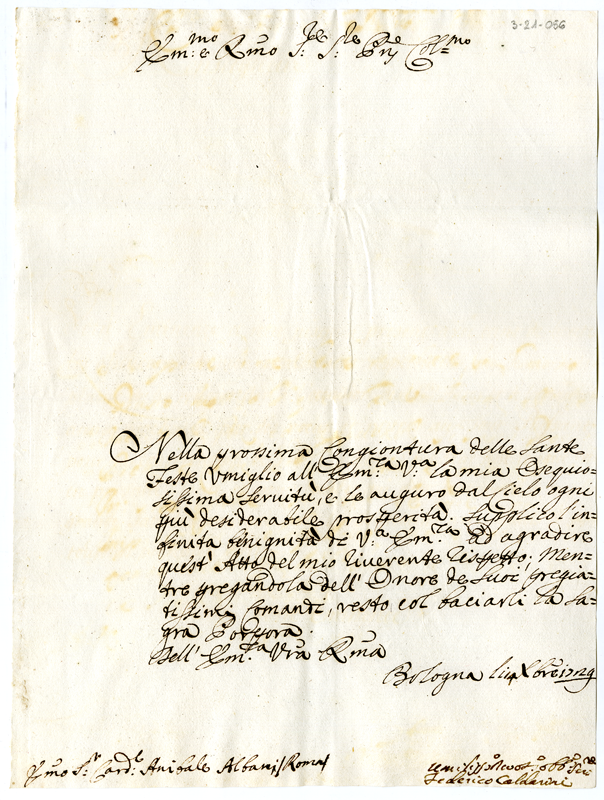 3-21-056
Em:mo e Rmo S:re S:re Prne Col=mo
Nella prossima Congiontura delle Sante
Feste Vmiglio all' Em:za Va la mia Osequio=
sissima Servitù, e le auguro dal Cielo ogni
più desiderabile prosperità. Supplico l'in=
finita benignità di Va Em:za ad agradire
quest' Atto del mio riverente rispetto, Men=
tre pregandola dell' Onore de Suoi pregia=
tissimi Comandi, resto col baciarli la Sa=
gra Porpora.
Dell' Em:za Vra Rma
Bologna li 14 Xbre 1729
Emo S:r Card:le Anibale Albani / Roma /
Umiliss:o Devot:o obb:o Ser:re
Federico Calderini